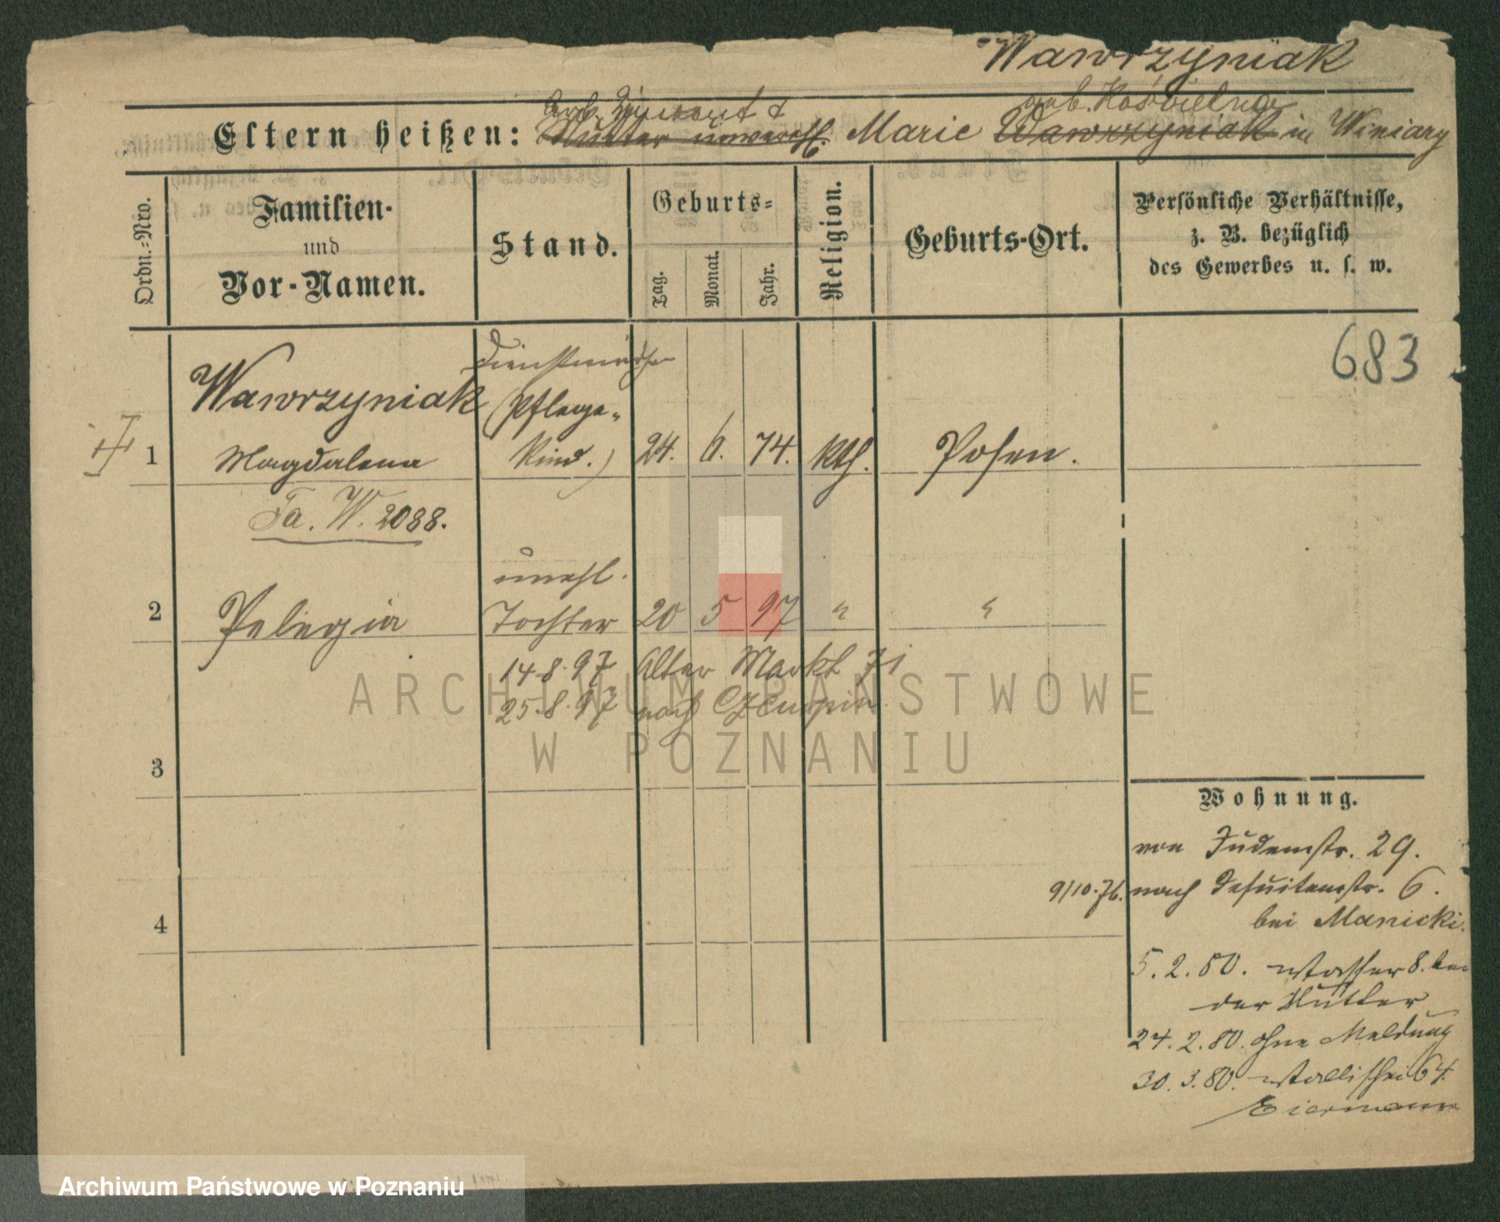 Wawrzyniak
geb. Kośćielna
Eltern heißen: Mutter unverehl. Marie Wawrzyniak in Winiary
Ordn.-Nro.
Familien-
und
Vor-Namen.
Stand.
Geburts-
Tag.
Monat.
Jahr.
Religion.
Geburts-Ort.
Persönliche Verhältnisse,
z. B. bezüglich
des Gewerbes u. s. w.
683
Dienstmädchen
Wawrzyniak (Pflege-
1 Magdalena Kind.) 24. 6. 74. Kth. Posen.
Fa. W. 2088.
unehl.
2 Pelegia Tochter 20 5 97 " "
14.8.97 Alter Markt 71
25.8.97 nach
3
4
Wohnung.
von Judenstr. 29.
9/10.76. nach Jesuitenstr. 6.
bei Manicki.
5.2.80. Wasser 8. bei
der Mutter
24.2.80. ohne Meldung
30.3.80. Wallischei 64.
Eiermann
ARCHIWUM PAŃSTWOWE
W POZNANIU
Archiwum Państwowe w Poznaniu